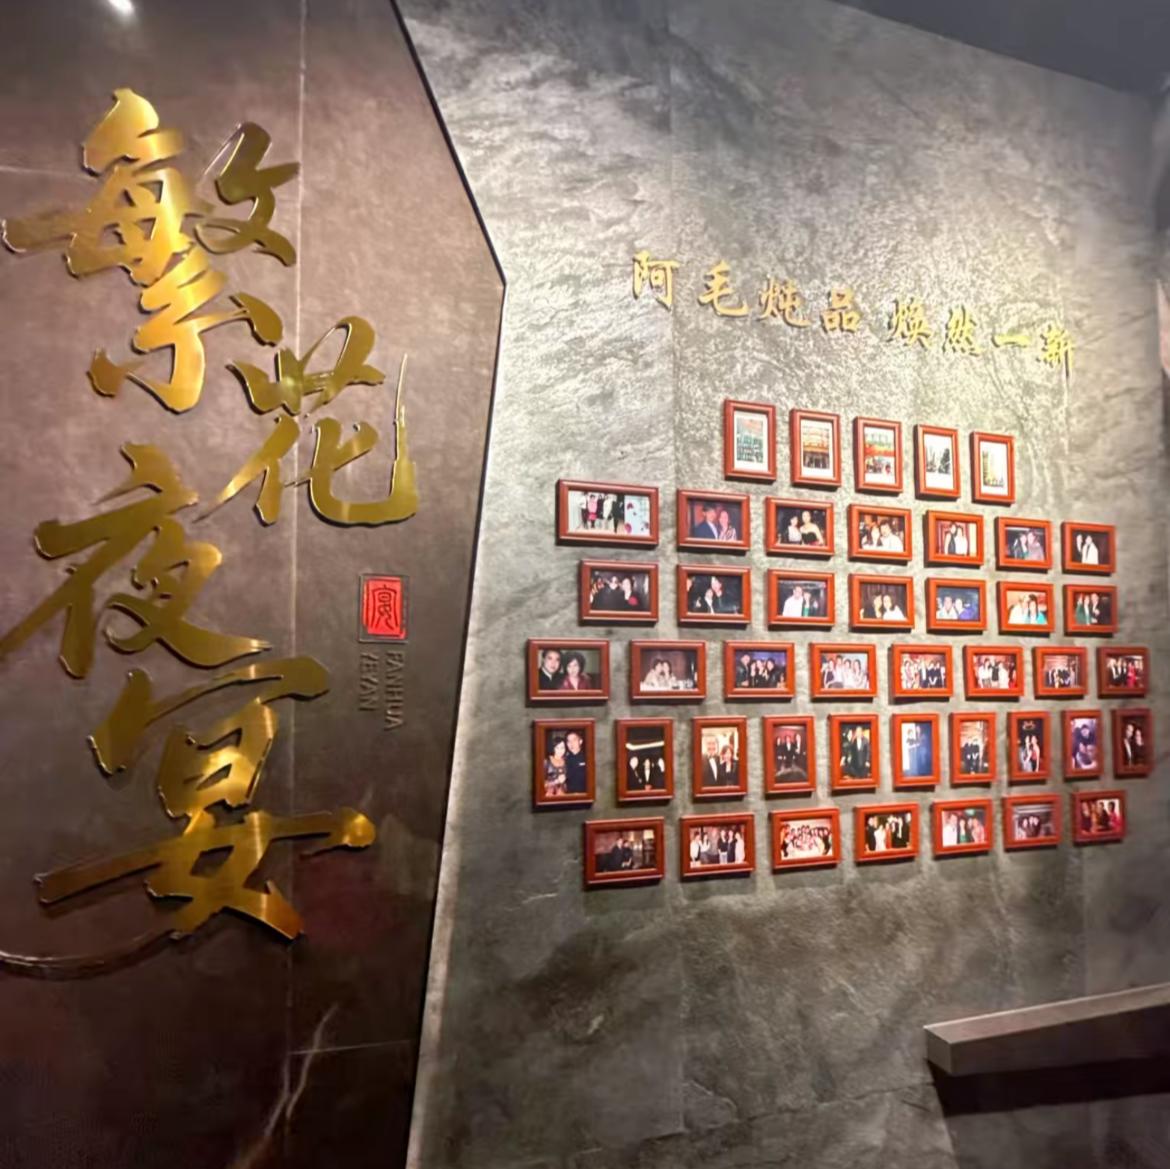 繁花
夜宴
宴
FANHUA
YEYAN
阿毛炖品 焕然一新